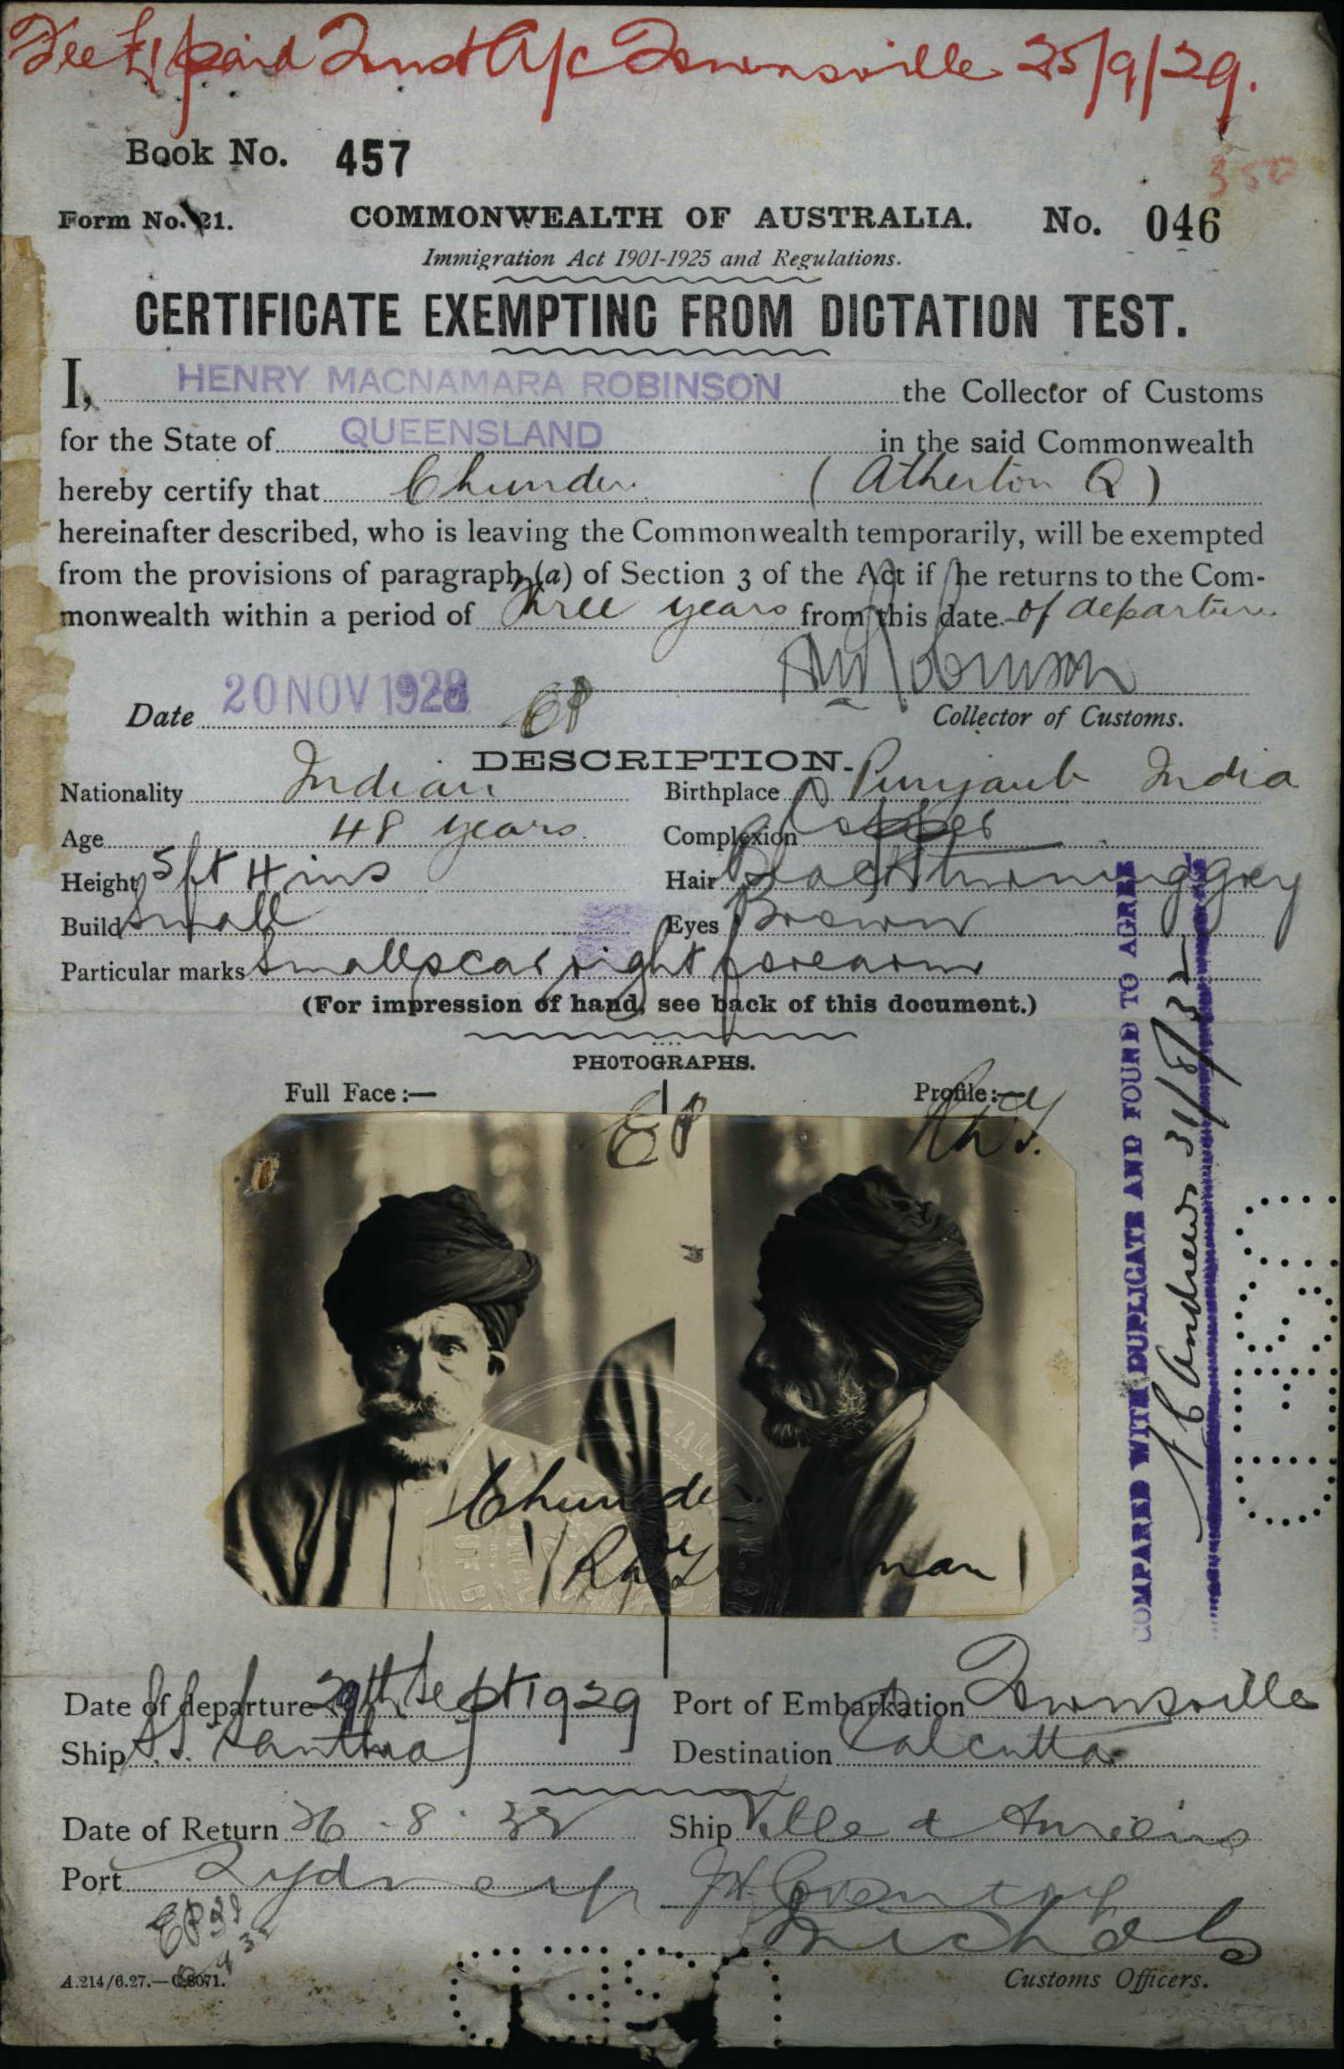 Fee £1 paid Trust A/c Townsville 25/9/29.
350
Book No. 457
Form No. 21. COMMONWEALTH OF AUSTRALIA. No. 046
Immigration Act 1901-1925 and Regulations.
CERTIFICATE EXEMPTING FROM DICTATION TEST.
I, HENRY MACNAMARA ROBINSON the Collector of Customs
for the State of QUEENSLAND in the said Commonwealth
hereby certify that Chunder (Atherton Q)
hereinafter described, who is leaving the Commonwealth temporarily, will be exempted
from the provisions of paragraph (a) of Section 3 of the Act if he returns to the Com-
monwealth within a period of Three years from this date of departure.
HM Robinson
Date 20 NOV 1928 EP Collector of Customs.
DESCRIPTION.
Nationality Indian Birthplace Punjaub India
Age 48 years Complexion Copper
Height 5 ft 4 ins Hair Black turning grey
Build Small Eyes Brown
Particular marks Small scar right forearm
(For impression of hand, see back of this document.)
PHOTOGRAPHS.
Full Face:— Profile:—
EP
Chunder
man
COMPARED WITH DUPLICATE AND FOUND TO AGREE
Andrews 31/8/32
Date of departure 29th Sept 1929 Port of Embarkation Townsville
Ship S.S. Santhia Destination Calcutta
Date of Return 26-8-32 Ship Ville d Amiens
Port Sydney
Nichols
A.214/6.27.—C.8071. Customs Officers.